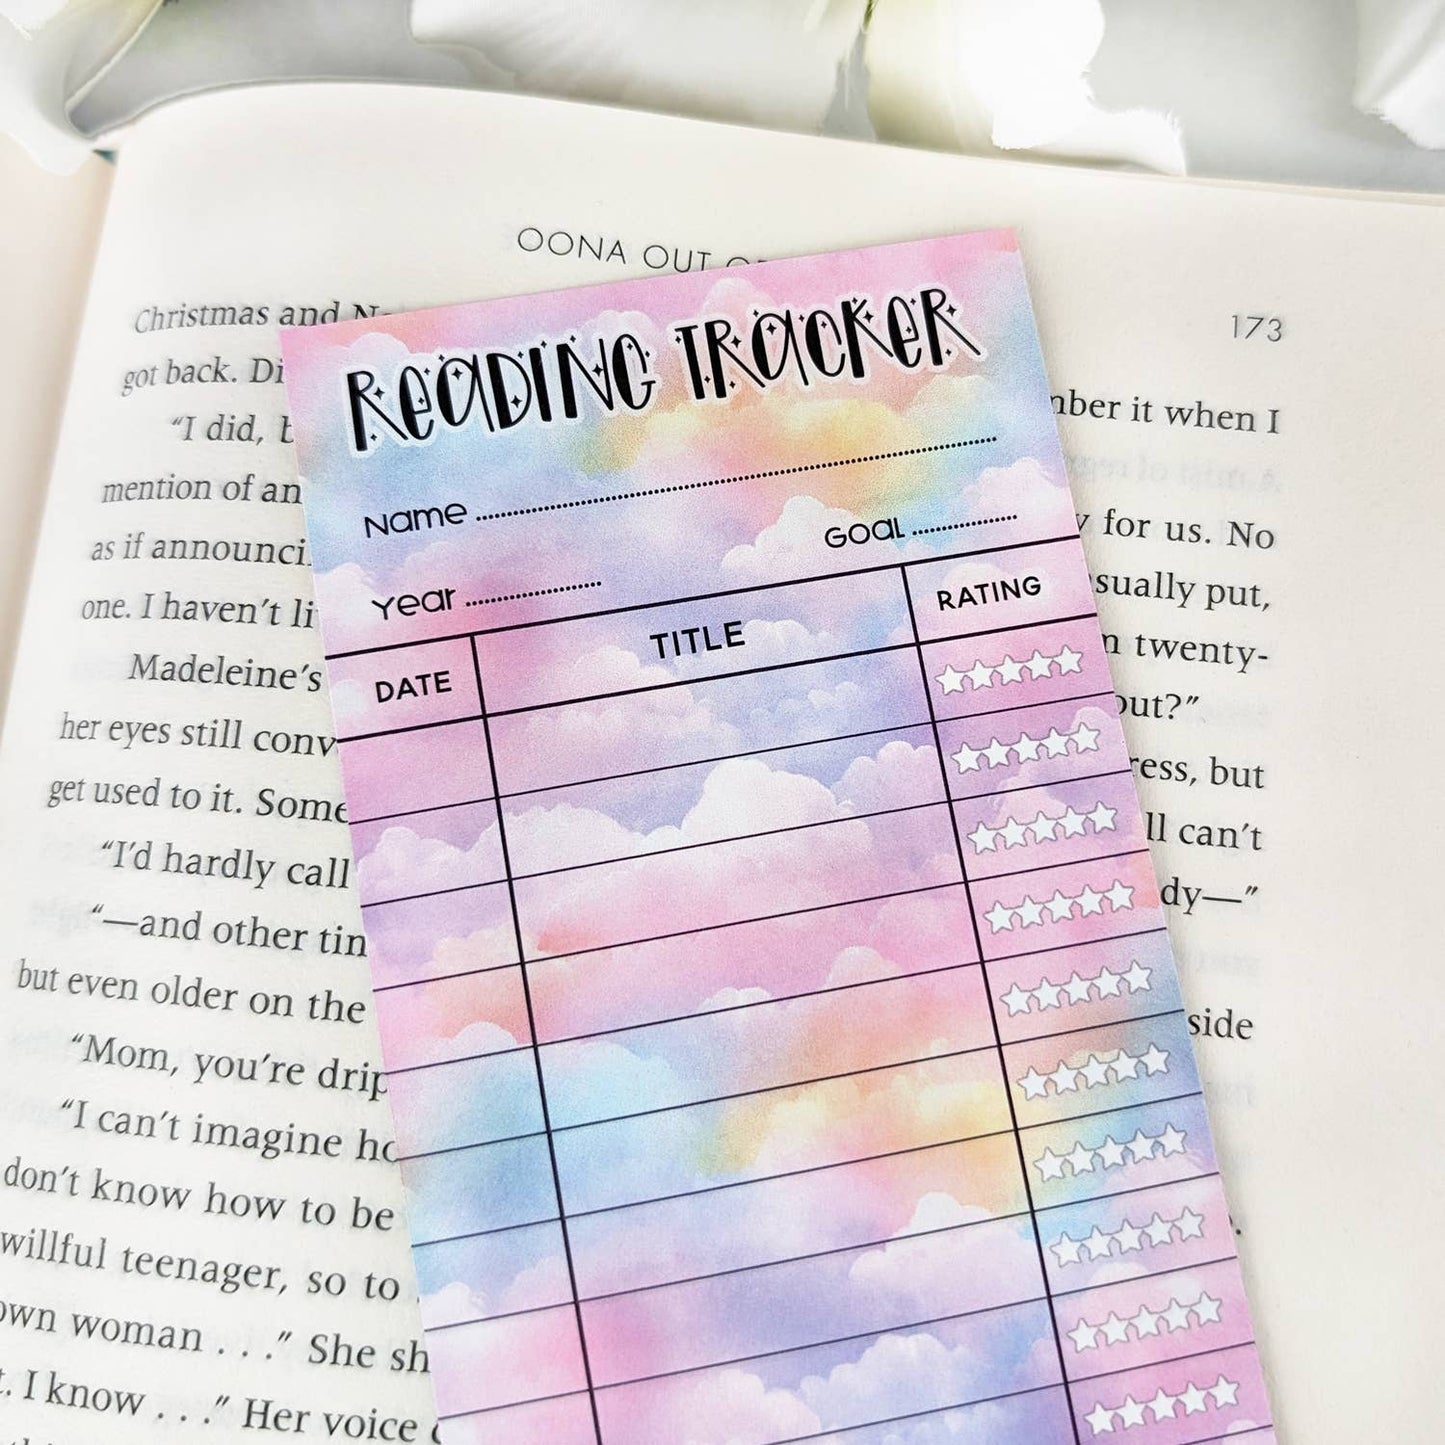 OONA OUT
173
Christmas and
got back.
“I did,
mention of an
as if
one. I haven’t
Madeleine’s
her eyes still
get used to it.
“I’d hardly call
“—and other
but even older on the
“Mom, you’re
“I can’t imagine
don’t know how to be
willful teenager, so to
own woman . . .” She
. I know . . .” Her voice
it when I
for us. No
put,
twenty-
but
can’t
READING TRACKER
Name
Goal
Year
DATE TITLE RATING